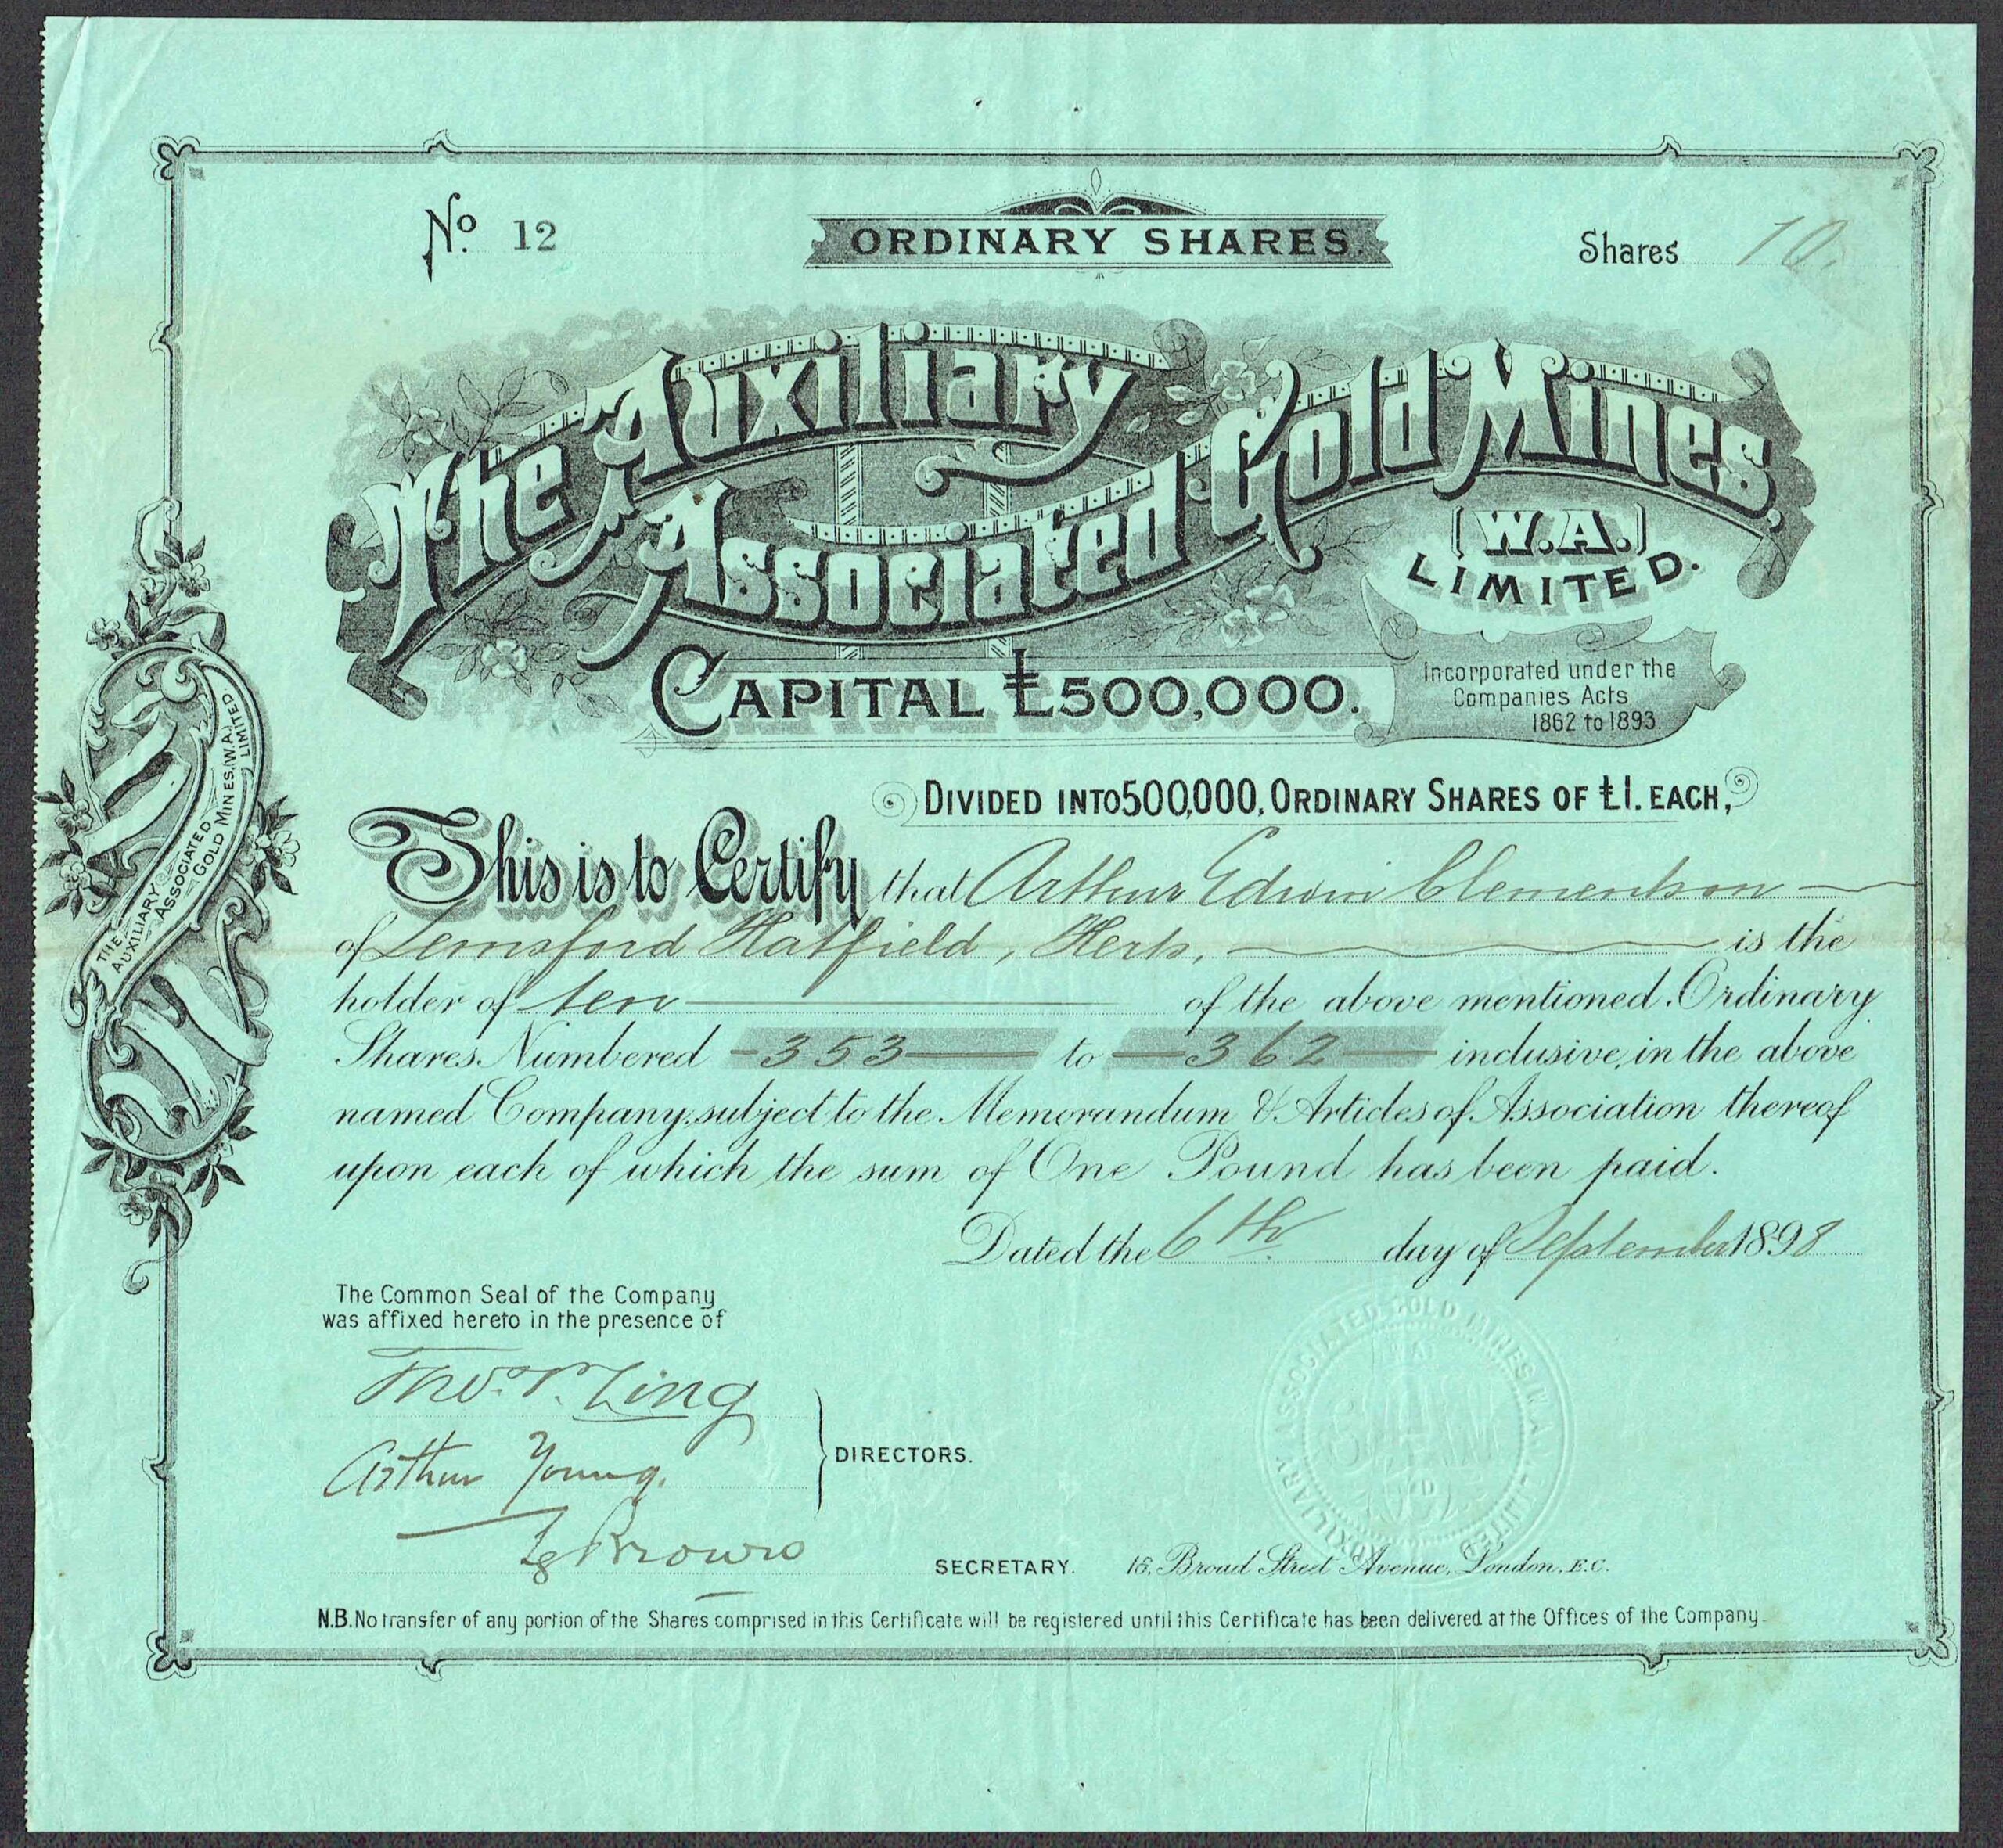 No. 12
ORDINARY SHARES.
Shares 10.
The Auxiliary
Associated Gold Mines,
(W.A.)
LIMITED.
CAPITAL £500,000.
Incorporated under the
Companies Acts
1862 to 1893.
DIVIDED INTO 500,000, ORDINARY SHARES OF £1. EACH,
This is to Certify that Arthur Edwin Clementson
of Lemsford Hatfield, Herts, is the
holder of ten of the above mentioned Ordinary
Shares Numbered 353 to 362 inclusive, in the above
named Company, subject to the Memorandum & Articles of Association thereof
upon each of which the sum of One Pound has been paid.
Dated the 6th day of September 1898
THE AUXILIARY ASSOCIATED GOLD MINES, (W.A.) LIMITED
The Common Seal of the Company
was affixed hereto in the presence of
Arthur Young.
DIRECTORS.
SECRETARY. 16, Broad Street Avenue, London, E.C.
AUXILIARY ASSOCIATED GOLD MINES W.A. LIMITED
N.B. No transfer of any portion of the Shares comprised in this Certificate will be registered until this Certificate has been delivered at the Offices of the Company.